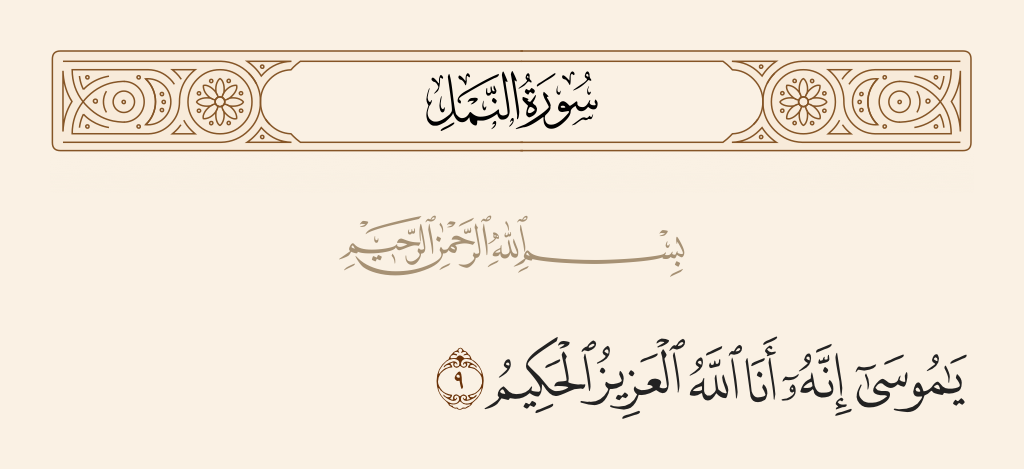 سُورَةُ النَّمۡلِ
بِسۡمِ ٱللَّهِ ٱلرَّحۡمَٰنِ ٱلرَّحِيمِ
يَٰمُوسَىٰٓ إِنَّهُۥٓ أَنَا ٱللَّهُ ٱلۡعَزِيزُ ٱلۡحَكِيمُ ٩